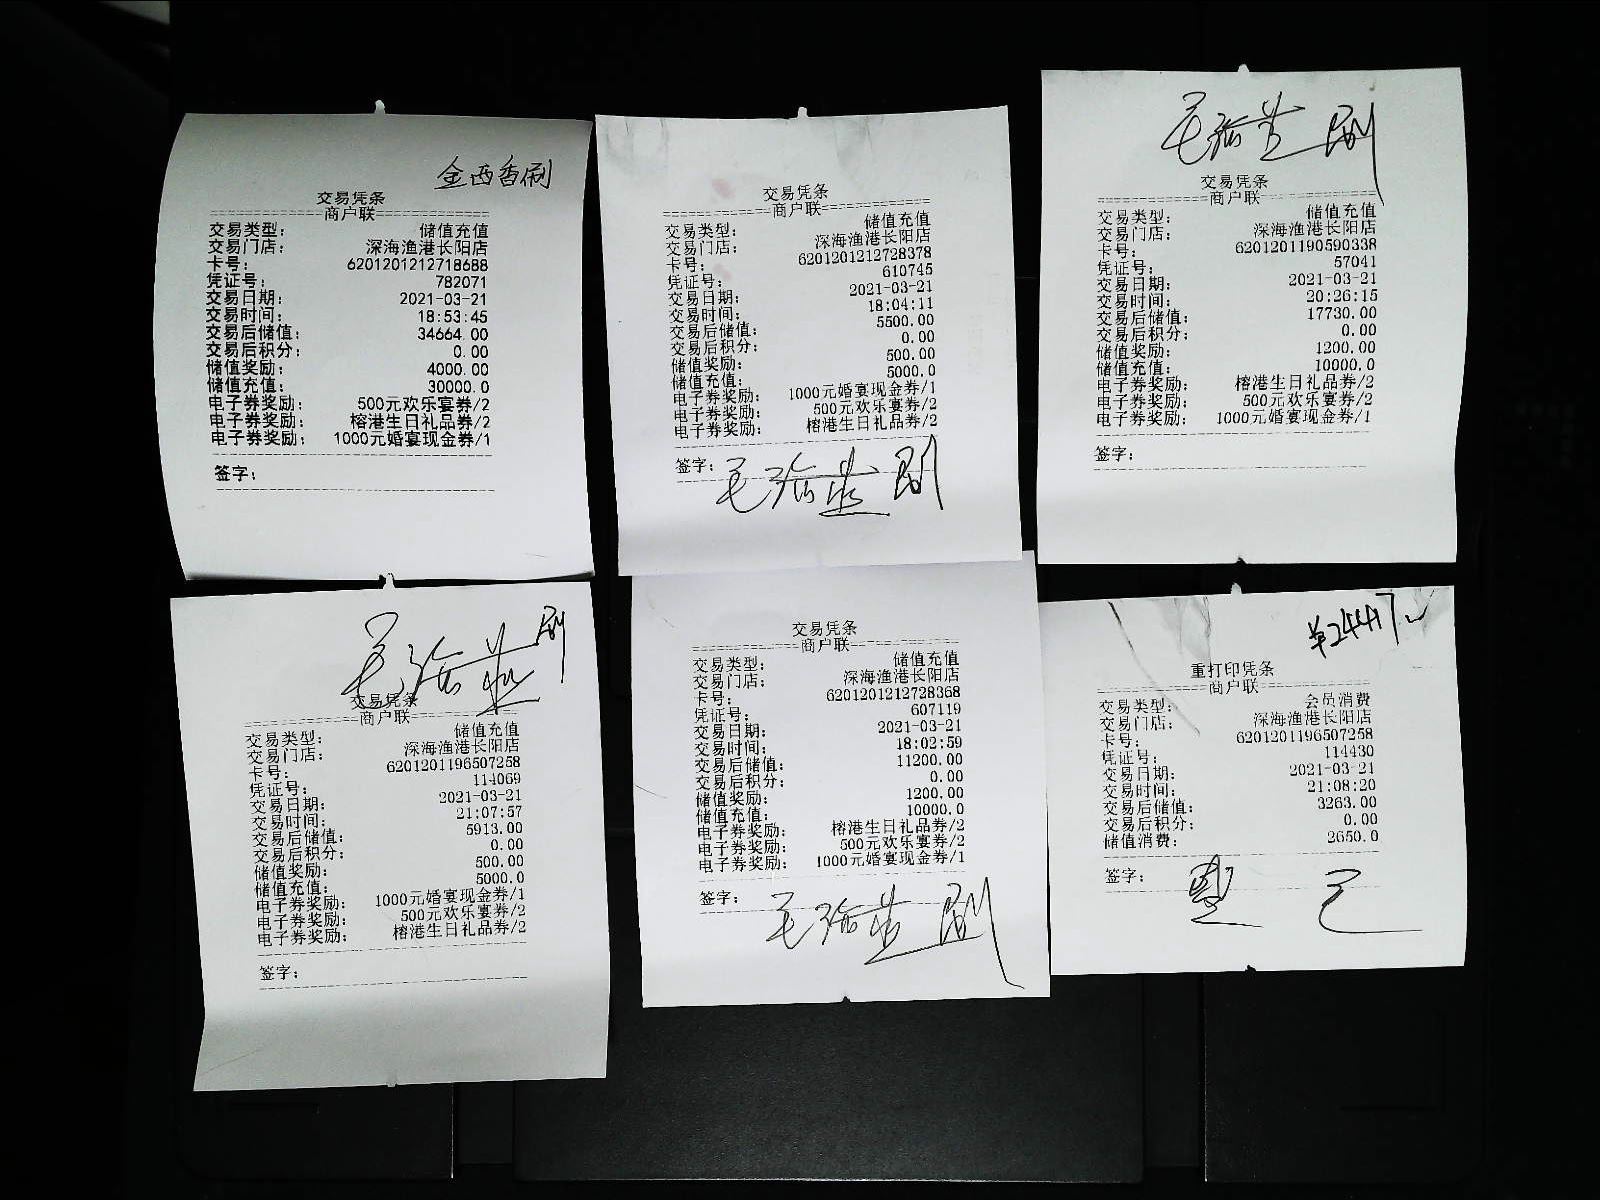 金西香刷
交易凭条
商户联
交易类型: 储值充值
交易门店: 深海渔港长阳店
卡号: 6201201212718688
凭证号: 782071
交易日期: 2021-03-21
交易时间: 18:53:45
交易后储值: 34664.00
交易后积分: 0.00
储值奖励: 4000.00
储值充值: 30000.0
电子券奖励: 500元欢乐宴券/2
电子券奖励: 榕港生日礼品券/2
电子券奖励: 1000元婚宴现金券/1
签字:
交易凭条
商户联
交易类型: 储值充值
交易门店: 深海渔港长阳店
卡号: 6201201212728378
凭证号: 610745
交易日期: 2021-03-21
交易时间: 18:04:11
交易后储值: 5500.00
交易后积分: 0.00
储值奖励: 500.00
储值充值: 5000.0
电子券奖励: 1000元婚宴现金券/1
电子券奖励: 500元欢乐宴券/2
电子券奖励: 榕港生日礼品券/2
签字: 刷
刷
交易凭条
商户联
交易类型: 储值充值
交易门店: 深海渔港长阳店
卡号: 6201201190590338
凭证号: 57041
交易日期: 2021-03-21
交易时间: 20:26:15
交易后储值: 17730.00
交易后积分: 0.00
储值奖励: 1200.00
储值充值: 10000.0
电子券奖励: 榕港生日礼品券/2
电子券奖励: 500元欢乐宴券/2
电子券奖励: 1000元婚宴现金券/1
签字:
刷
交易凭条
商户联
交易类型: 储值充值
交易门店: 深海渔港长阳店
卡号: 6201201196507258
凭证号: 114069
交易日期: 2021-03-21
交易时间: 21:07:57
交易后储值: 5913.00
交易后积分: 0.00
储值奖励: 500.00
储值充值: 5000.0
电子券奖励: 1000元婚宴现金券/1
电子券奖励: 500元欢乐宴券/2
电子券奖励: 榕港生日礼品券/2
签字:
交易凭条
商户联
交易类型: 储值充值
交易门店: 深海渔港长阳店
卡号: 6201201212728368
凭证号: 607119
交易日期: 2021-03-21
交易时间: 18:02:59
交易后储值: 11200.00
交易后积分: 0.00
储值奖励: 1200.00
储值充值: 10000.0
电子券奖励: 榕港生日礼品券/2
电子券奖励: 500元欢乐宴券/2
电子券奖励: 1000元婚宴现金券/1
签字: 刷
¥24417
重打印凭条
商户联
交易类型: 会员消费
交易门店: 深海渔港长阳店
卡号: 6201201196507258
凭证号: 114430
交易日期: 2021-03-21
交易时间: 21:08:20
交易后储值: 3263.00
交易后积分: 0.00
储值消费: 2650.0
签字: